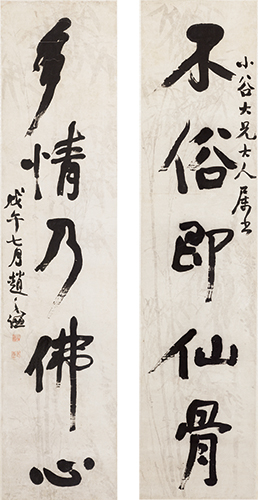 小谷大兄大人屬書
不俗即仙骨
多情乃佛心
戊午七月趙之謙